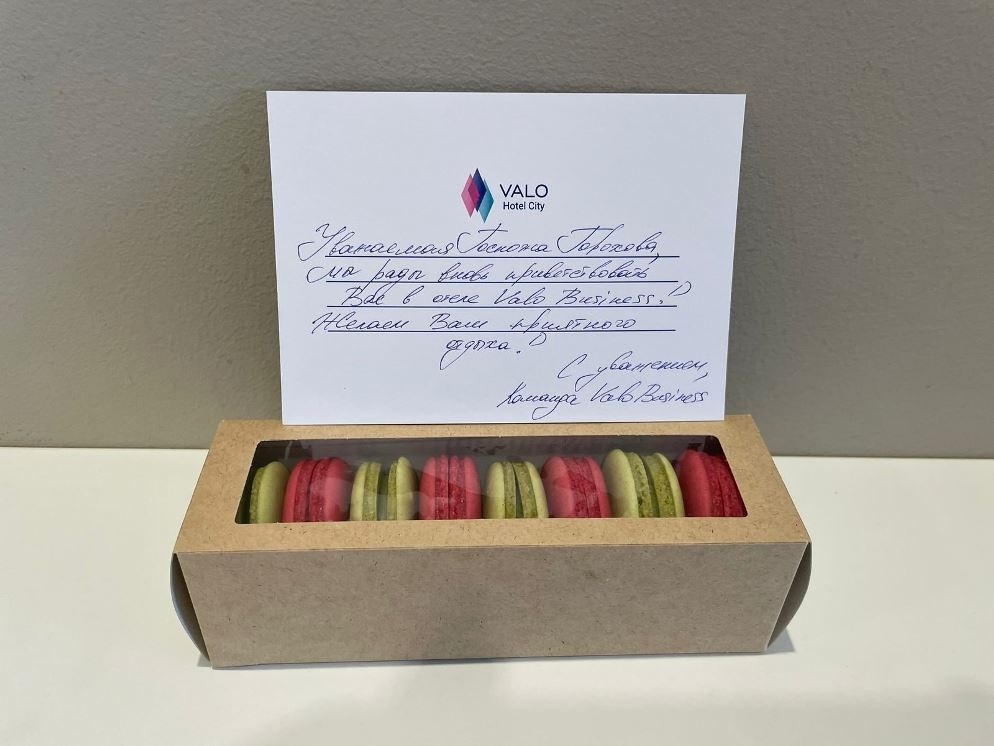 VALO
Hotel City
Уважаемая Госпожа Горохова,
мы рады вновь приветствовать
Вас в отеле Valo Business. :)
Желаем Вам приятного
отдыха. :)
С уважением,
Команда Valo Business